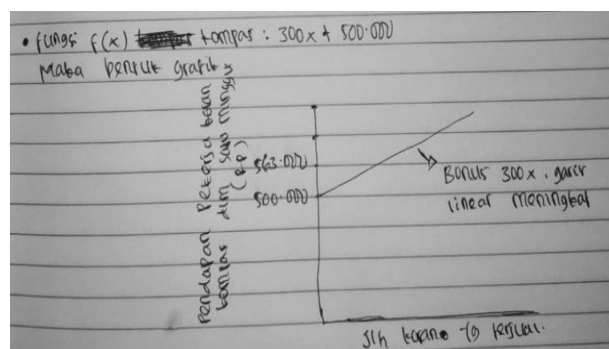 • fungsi f(x) kompas : 300x + 500.000
Maka bentuk grafik
Pendapan Pekerja koran
kompas dlm satu minggu
(Rp)
563.000
500.000
Bonus 300x, garis
linear meningkat
Jlh koran yg terjual.